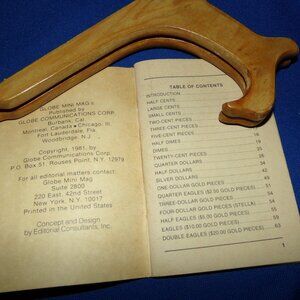 GLOBE MINI MAG's
Published by
GLOBE COMMUNICATIONS CORP.
Burbank, Cal
Montreal, Canada • Chicago, Ill.
Fort Lauderdale, Fla.
Woodbridge, N.J.
Copyright, 1981, by
Globe Communications Corp.
P.O. Box 51, Rouses Point, N.Y. 12979
For all editorial matters contact:
Globe Mini Mag
Suite 2800
220 East, 42nd Street
New York, N.Y. 10017
Printed in the United States
Concept and Design
by Editorial Consultants, Inc.
TABLE OF CONTENTS
INTRODUCTION
HALF CENTS
LARGE CENTS
SMALL CENTS
TWO-CENT PIECES
THREE-CENT PIECES
FIVE-CENT PIECES 16
HALF DIMES
DIMES
TWENTY-CENT PIECES
QUARTER DOLLARS
HALF DOLLARS
SILVER DOLLARS
ONE-DOLLAR GOLD PIECES
QUARTER EAGLES ($2.50 GOLD PIECES) 51
THREE-DOLLAR GOLD PIECES 54
FOUR-DOLLAR GOLD PIECES (STELLA) 55
HALF EAGLES ($5.00 GOLD PIECES)
EAGLES ($10.00 GOLD PIECES)
DOUBLE EAGLES ($20.00 GOLD PIECES) 63
1